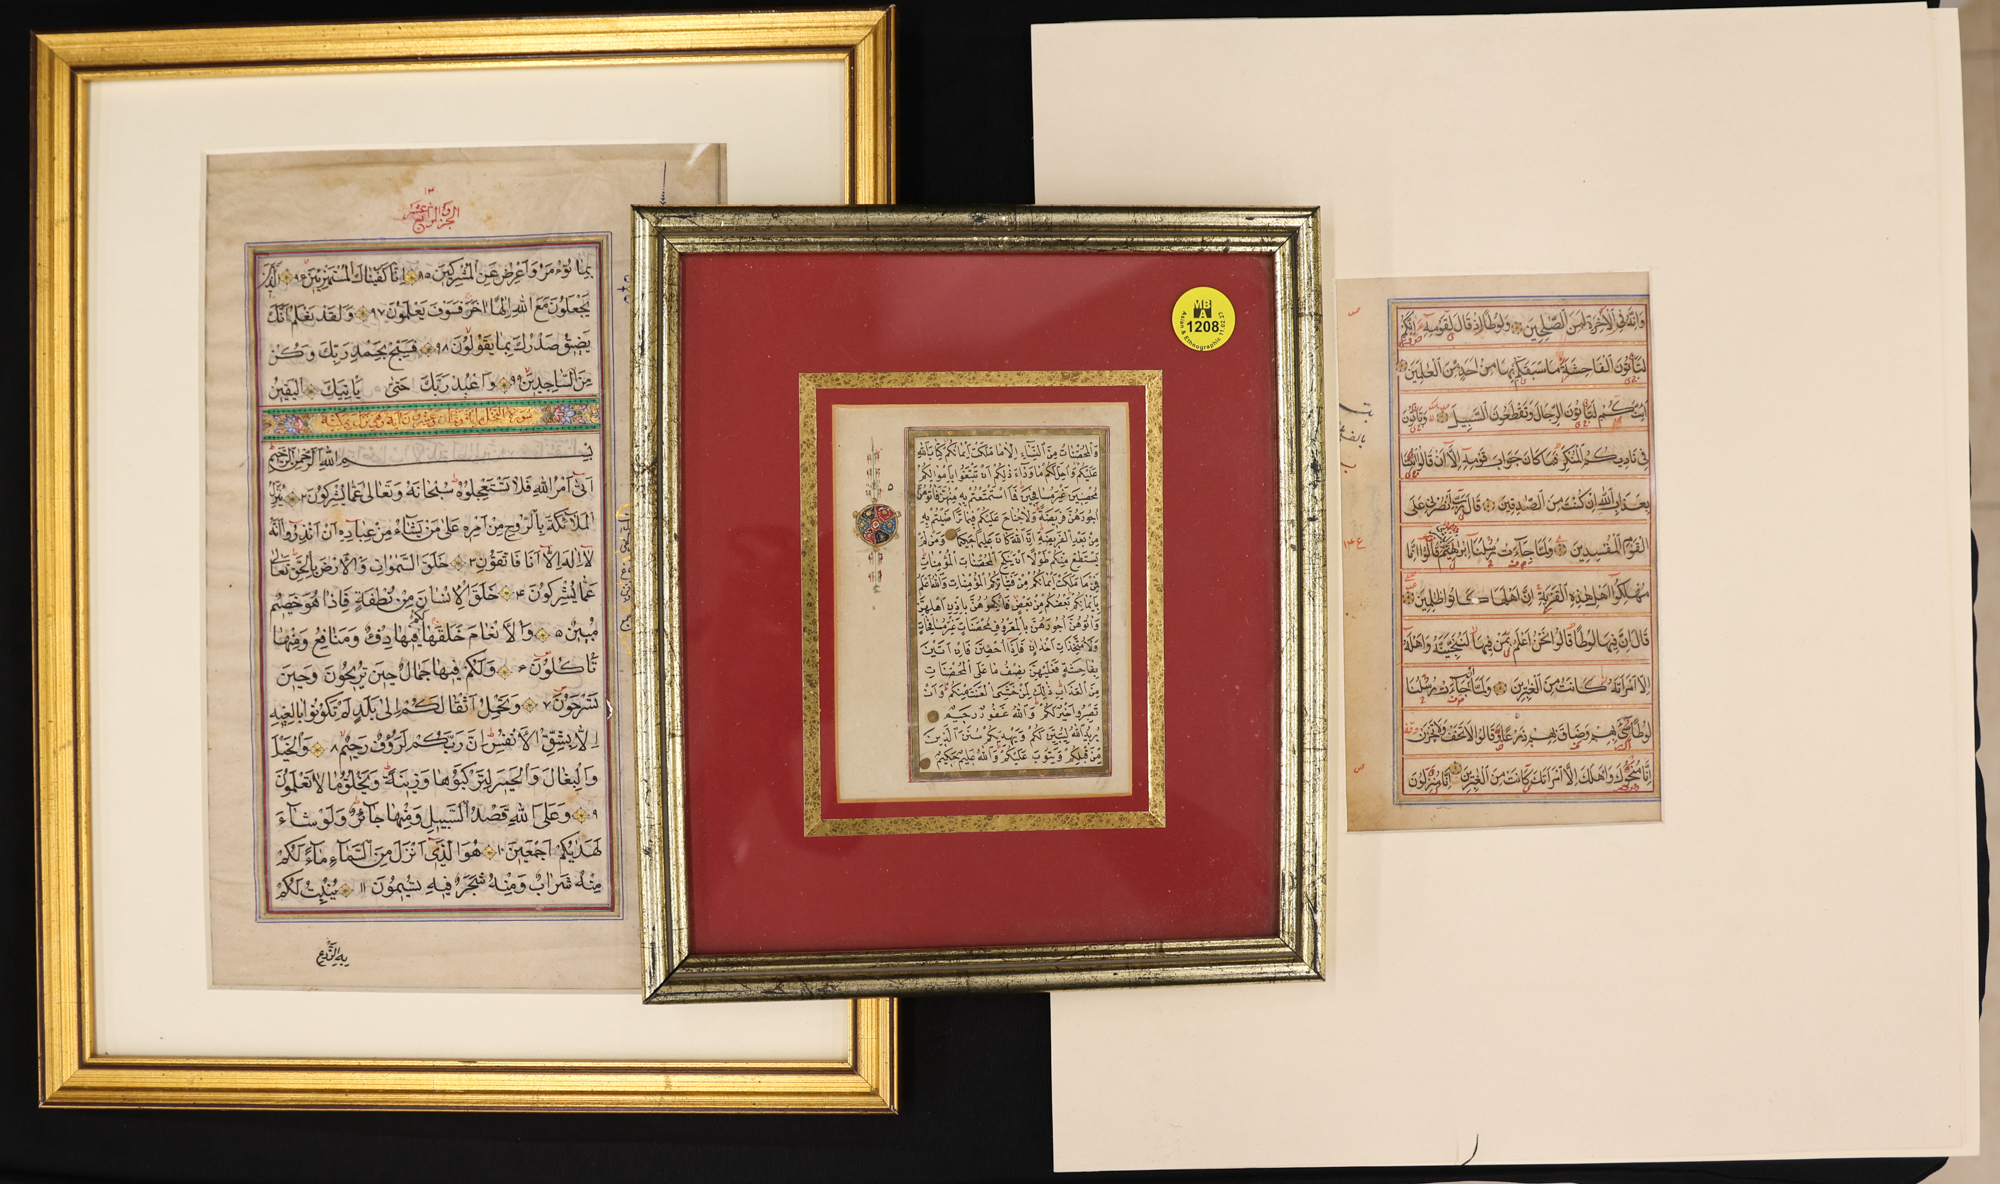 الجزء الرابع عشر
بما تؤمر واعرض عن المشركين ٩٥ انا كفيناك المستهزئين ٩٦ الذين
يجعلون مع الله الها اخر فسوف يعلمون ٩٧ ولقد نعلم انك
يضيق صدرك بما يقولون ٩٨ فسبح بحمد ربك وكن
من الساجدين ٩٩ واعبد ربك حتى ياتيك اليقين
سورة النحل
بسم الله الرحمن الرحيم
اتى امر الله فلا تستعجلوه سبحانه وتعالى عما يشركون ٢ ينزل
الملائكة بالروح من امره على من يشاء من عباده ان انذروا انه
لا اله الا انا فاتقون ٣ خلق السموات والارض بالحق تعالى
عما يشركون ۴ خلق الانسان من نطفة فاذا هو خصيم
مبين ۵ والانعام خلقها لكم فيها دفء ومنافع ومنها
تاكلون ۶ ولكم فيها جمال حين تريحون وحين
تسرحون ٧ وتحمل اثقالكم الى بلد لم تكونوا بالغيه
الا بشق الانفس ان ربكم لرؤف رحيم ٨ والخيل
والبغال والحمير لتركبوها وزينة ويخلق ما لا تعلمون
٩ وعلى الله قصد السبيل ومنها جائر ولو شاء
لهديكم اجمعين ١٠ هو الذي انزل من السماء ماء لكم
منه شراب ومنه شجر فيه تسيمون ١١ ينبت لكم
به الزرع
MBA
1208
Asian & Ethnographic 11.02.22
والمحصنات من النساء الا ما ملكت ايمانكم كتاب الله
عليكم واحل لكم ما وراء ذلكم ان تبتغوا باموالكم
محصنين غير مسافحين فما استمتعتم به منهن فاتوهن
اجورهن فريضة ولا جناح عليكم فيما تراضيتم به
من بعد الفريضة ان الله كان عليما حكيما ومن لم
يستطع منكم طولا ان ينكح المحصنات المؤمنات
فمن ما ملكت ايمانكم من فتياتكم المؤمنات والله اعلم
بايمانكم بعضكم من بعض فانكحوهن باذن اهلهن
واتوهن اجورهن بالمعروف محصنات غير مسافحات
ولا متخذات اخدان فاذا احصن فان اتين
بفاحشة فعليهن نصف ما على المحصنات
من العذاب ذلك لمن خشى العنت منكم وان
تصبروا خير لكم والله غفور رحيم
يريد الله ليبين لكم ويهديكم سنن الذين
من قبلكم ويتوب عليكم والله عليم حكيم
وانه فى الاخرة لمن الصلحين ولوطا اذ قال لقومه انكم
لتاتون الفاحشة ما سبقكم بها من احد من العلمين
ائنكم لتاتون الرجال وتقطعون السبيل وتاتون
فى ناديكم المنكر فما كان جواب قومه الا ان قالوا ائتنا
بعذاب الله ان كنت من الصدقين قال رب انصرنى على
القوم المفسدين ولما جاءت رسلنا ابرهيم بالبشرى قالوا انا
مهلكوا اهل هذه القرية ان اهلها كانوا ظلمين
قال ان فيها لوطا قالوا نحن اعلم بمن فيها لننجينه واهله
الا امراته كانت من الغبرين ولما ان جاءت رسلنا
لوطا سىء بهم وضاق بهم ذرعا وقالوا لا تخف ولا تحزن
انا منجوك واهلك الا امراتك كانت من الغبرين انا منزلون